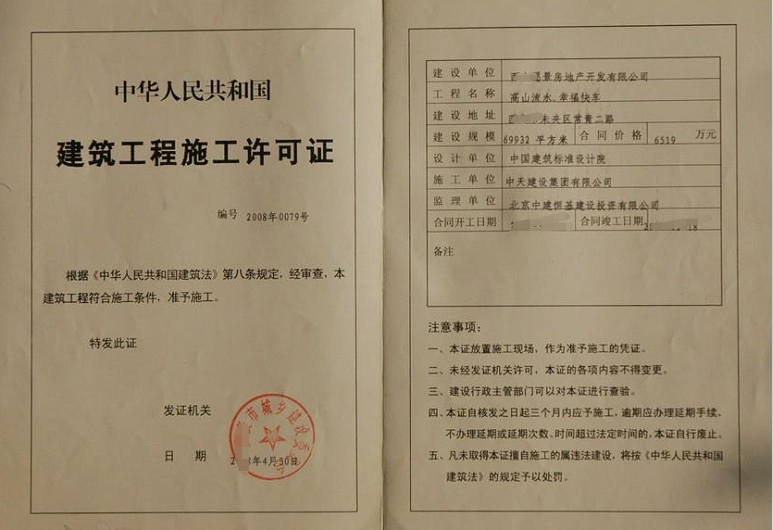 中华人民共和国
建筑工程施工许可证
编号 2008年0079号
根据《中华人民共和国建筑法》第八条规定，经审查，本
建筑工程符合施工条件，准予施工。
特发此证
发证机关
市城乡建设委
日 期 年4月30日
建设单位 景房地产开发有限公司
工程名称 高山流水、幸福快车
建设地址 未央区常青二路
建设规模 69932 平方米 合同价格 6519 万元
设计单位 中国建筑标准设计院
施工单位 中天建设集团有限公司
监理单位 北京中建恒基建设投资有限公司
合同开工日期 合同竣工日期
备注
注意事项：
一、本证放置施工现场，作为准予施工的凭证。
二、未经发证机关许可，本证的各项内容不得变更。
三、建设行政主管部门可以对本证进行查验。
四、本证自核发之日起三个月内应予施工，逾期应办理延期手续，
不办理延期或延期次数、时间超过法定时间的，本证自行废止。
五、凡未取得本证擅自施工的属违法建设，将按《中华人民共和国
建筑法》的规定予以处罚。